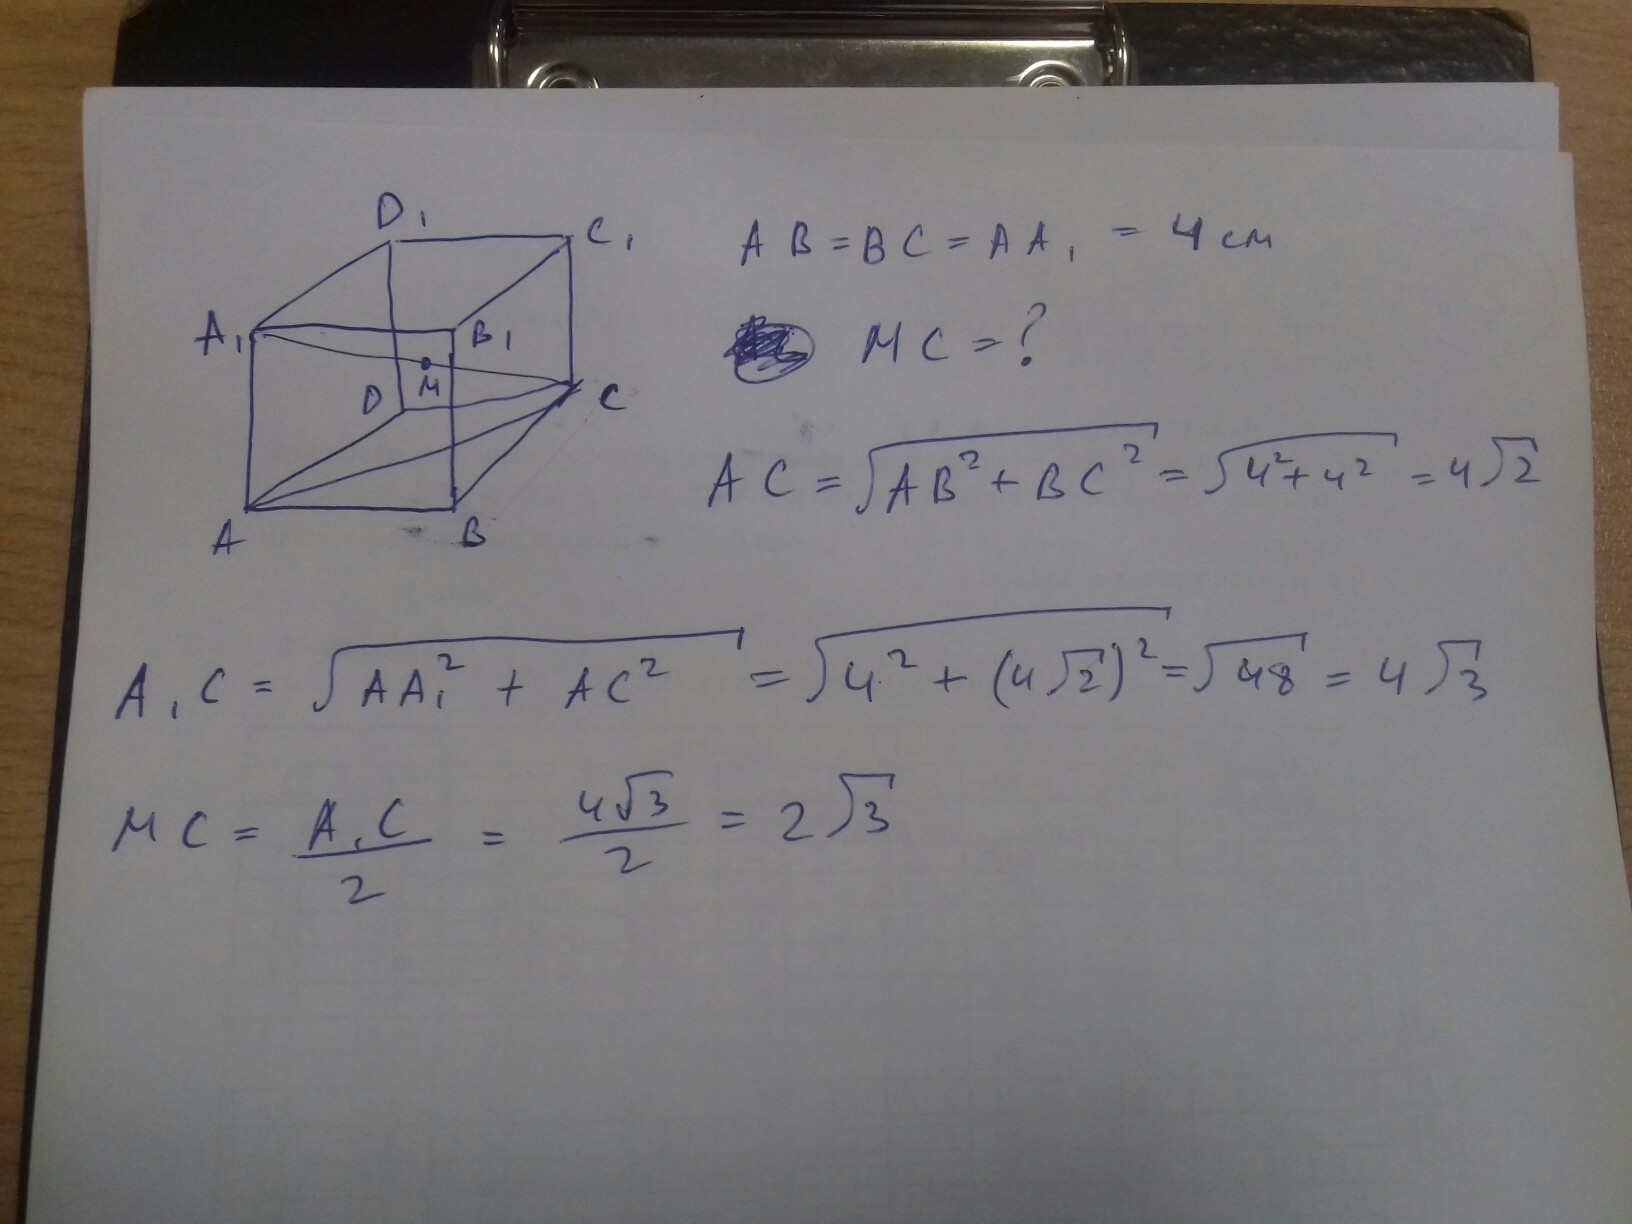 D₁
C₁
A₁
B₁
M
D
C
A
B
AB = BC = AA₁ = 4 см
MC = ?
AC = √(AB² + BC²) = √(4² + 4²) = 4√2
A₁C = √(AA₁² + AC²) = √(4² + (4√2)²) = √48 = 4√3
MC = A₁C/2 = 4√3/2 = 2√3